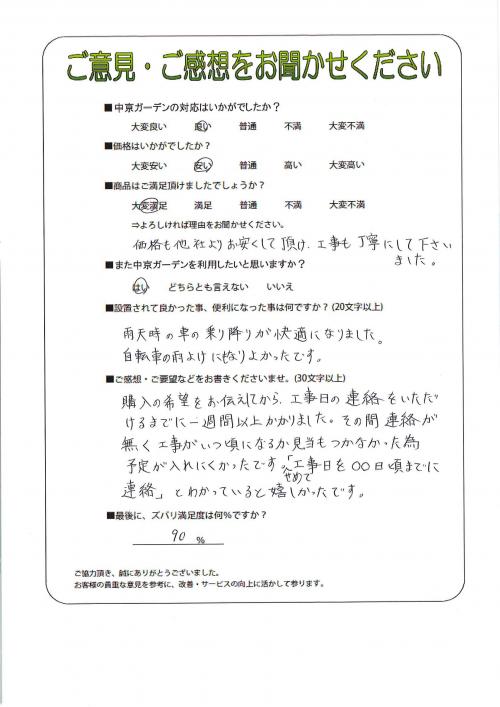 ご意見・ご感想をお聞かせください
■中京ガーデンの対応はいかがでしたか？
大変良い 良い 普通 不満 大変不満
■価格はいかがでしたか？
大変安い 安い 普通 高い 大変高い
■商品はご満足頂けましたでしょうか？
大変満足 満足 普通 不満 大変不満
⇒よろしければ理由をお聞かせください。
価格も他社よりお安くして頂け、工事も丁寧にして下さい
ました。
■また中京ガーデンを利用したいと思いますか？
はい どちらとも言えない いいえ
■設置されて良かった事、便利になった事は何ですか？(20文字以上)
雨天時の車の乗り降りが快適になりました。
自転車の雨よけにもなりよかったです。
■ご感想・ご要望などをお書きくださいませ。(30文字以上)
購入の希望をお伝えしてから、工事日の連絡をいただ
けるまでに一週間以上かかりました。その間連絡が
無く工事がいつ頃になるか見当もつかなかった為
予定が入れにくかったです。せめて「工事日を〇〇日頃までに
連絡」とわかっていると嬉しかったです。
■最後に、ズバリ満足度は何％ですか？
90 ％
ご協力頂き、誠にありがとうございました。
お客様の貴重な意見を参考に、改善・サービスの向上に活かして参ります。